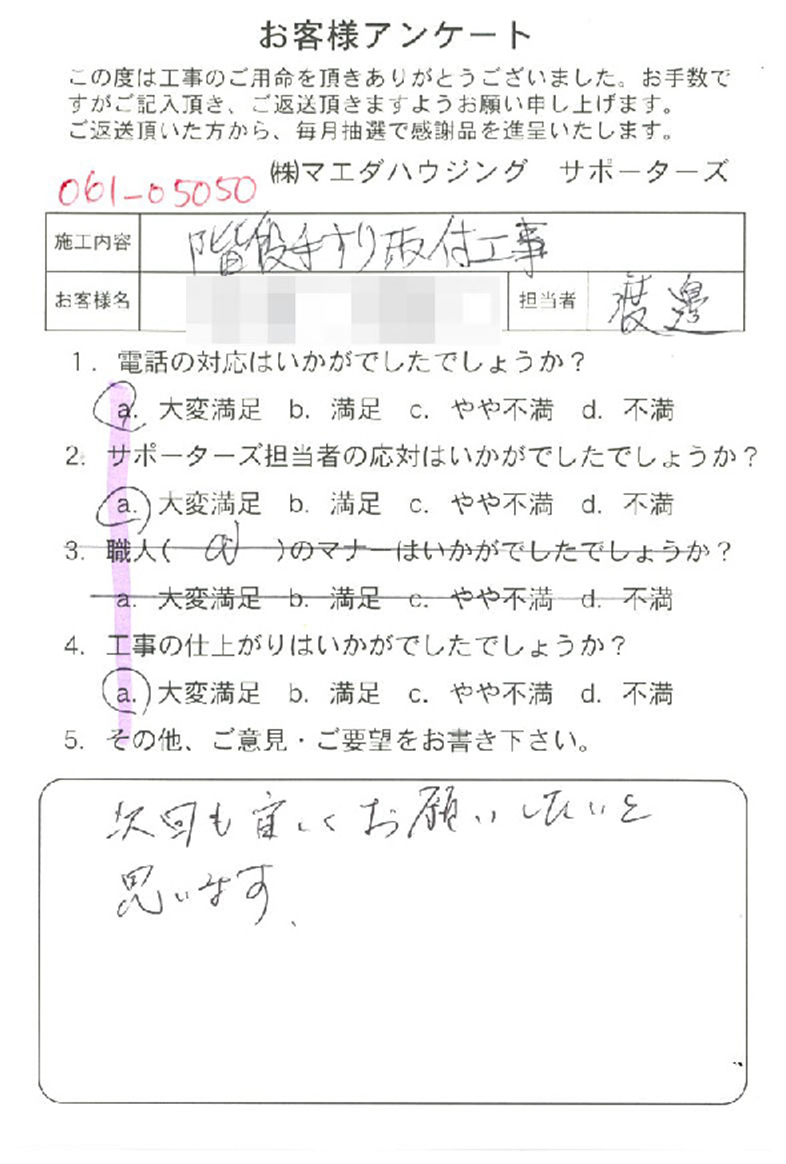 お客様アンケート
この度は工事のご用命を頂きありがとうございました。お手数で
すがご記入頂き、ご返送頂きますようお願い申し上げます。
ご返送頂いた方から、毎月抽選で感謝品を進呈いたします。
㈱マエダハウジング　サポーターズ
061-05050
施工内容 階段手すり取付工事
お客様名 担当者 渡邊
1. 電話の対応はいかがでしたでしょうか？
a. 大変満足 b. 満足 c. やや不満 d. 不満
2. サポーターズ担当者の応対はいかがでしたでしょうか？
a. 大変満足 b. 満足 c. やや不満 d. 不満
3. 職人( )のマナーはいかがでしたでしょうか？
a. 大変満足 b. 満足 c. やや不満 d. 不満
4. 工事の仕上がりはいかがでしたでしょうか？
a. 大変満足 b. 満足 c. やや不満 d. 不満
5. その他、ご意見・ご要望をお書き下さい。
次回も宜しくお願いしたいと
思います、